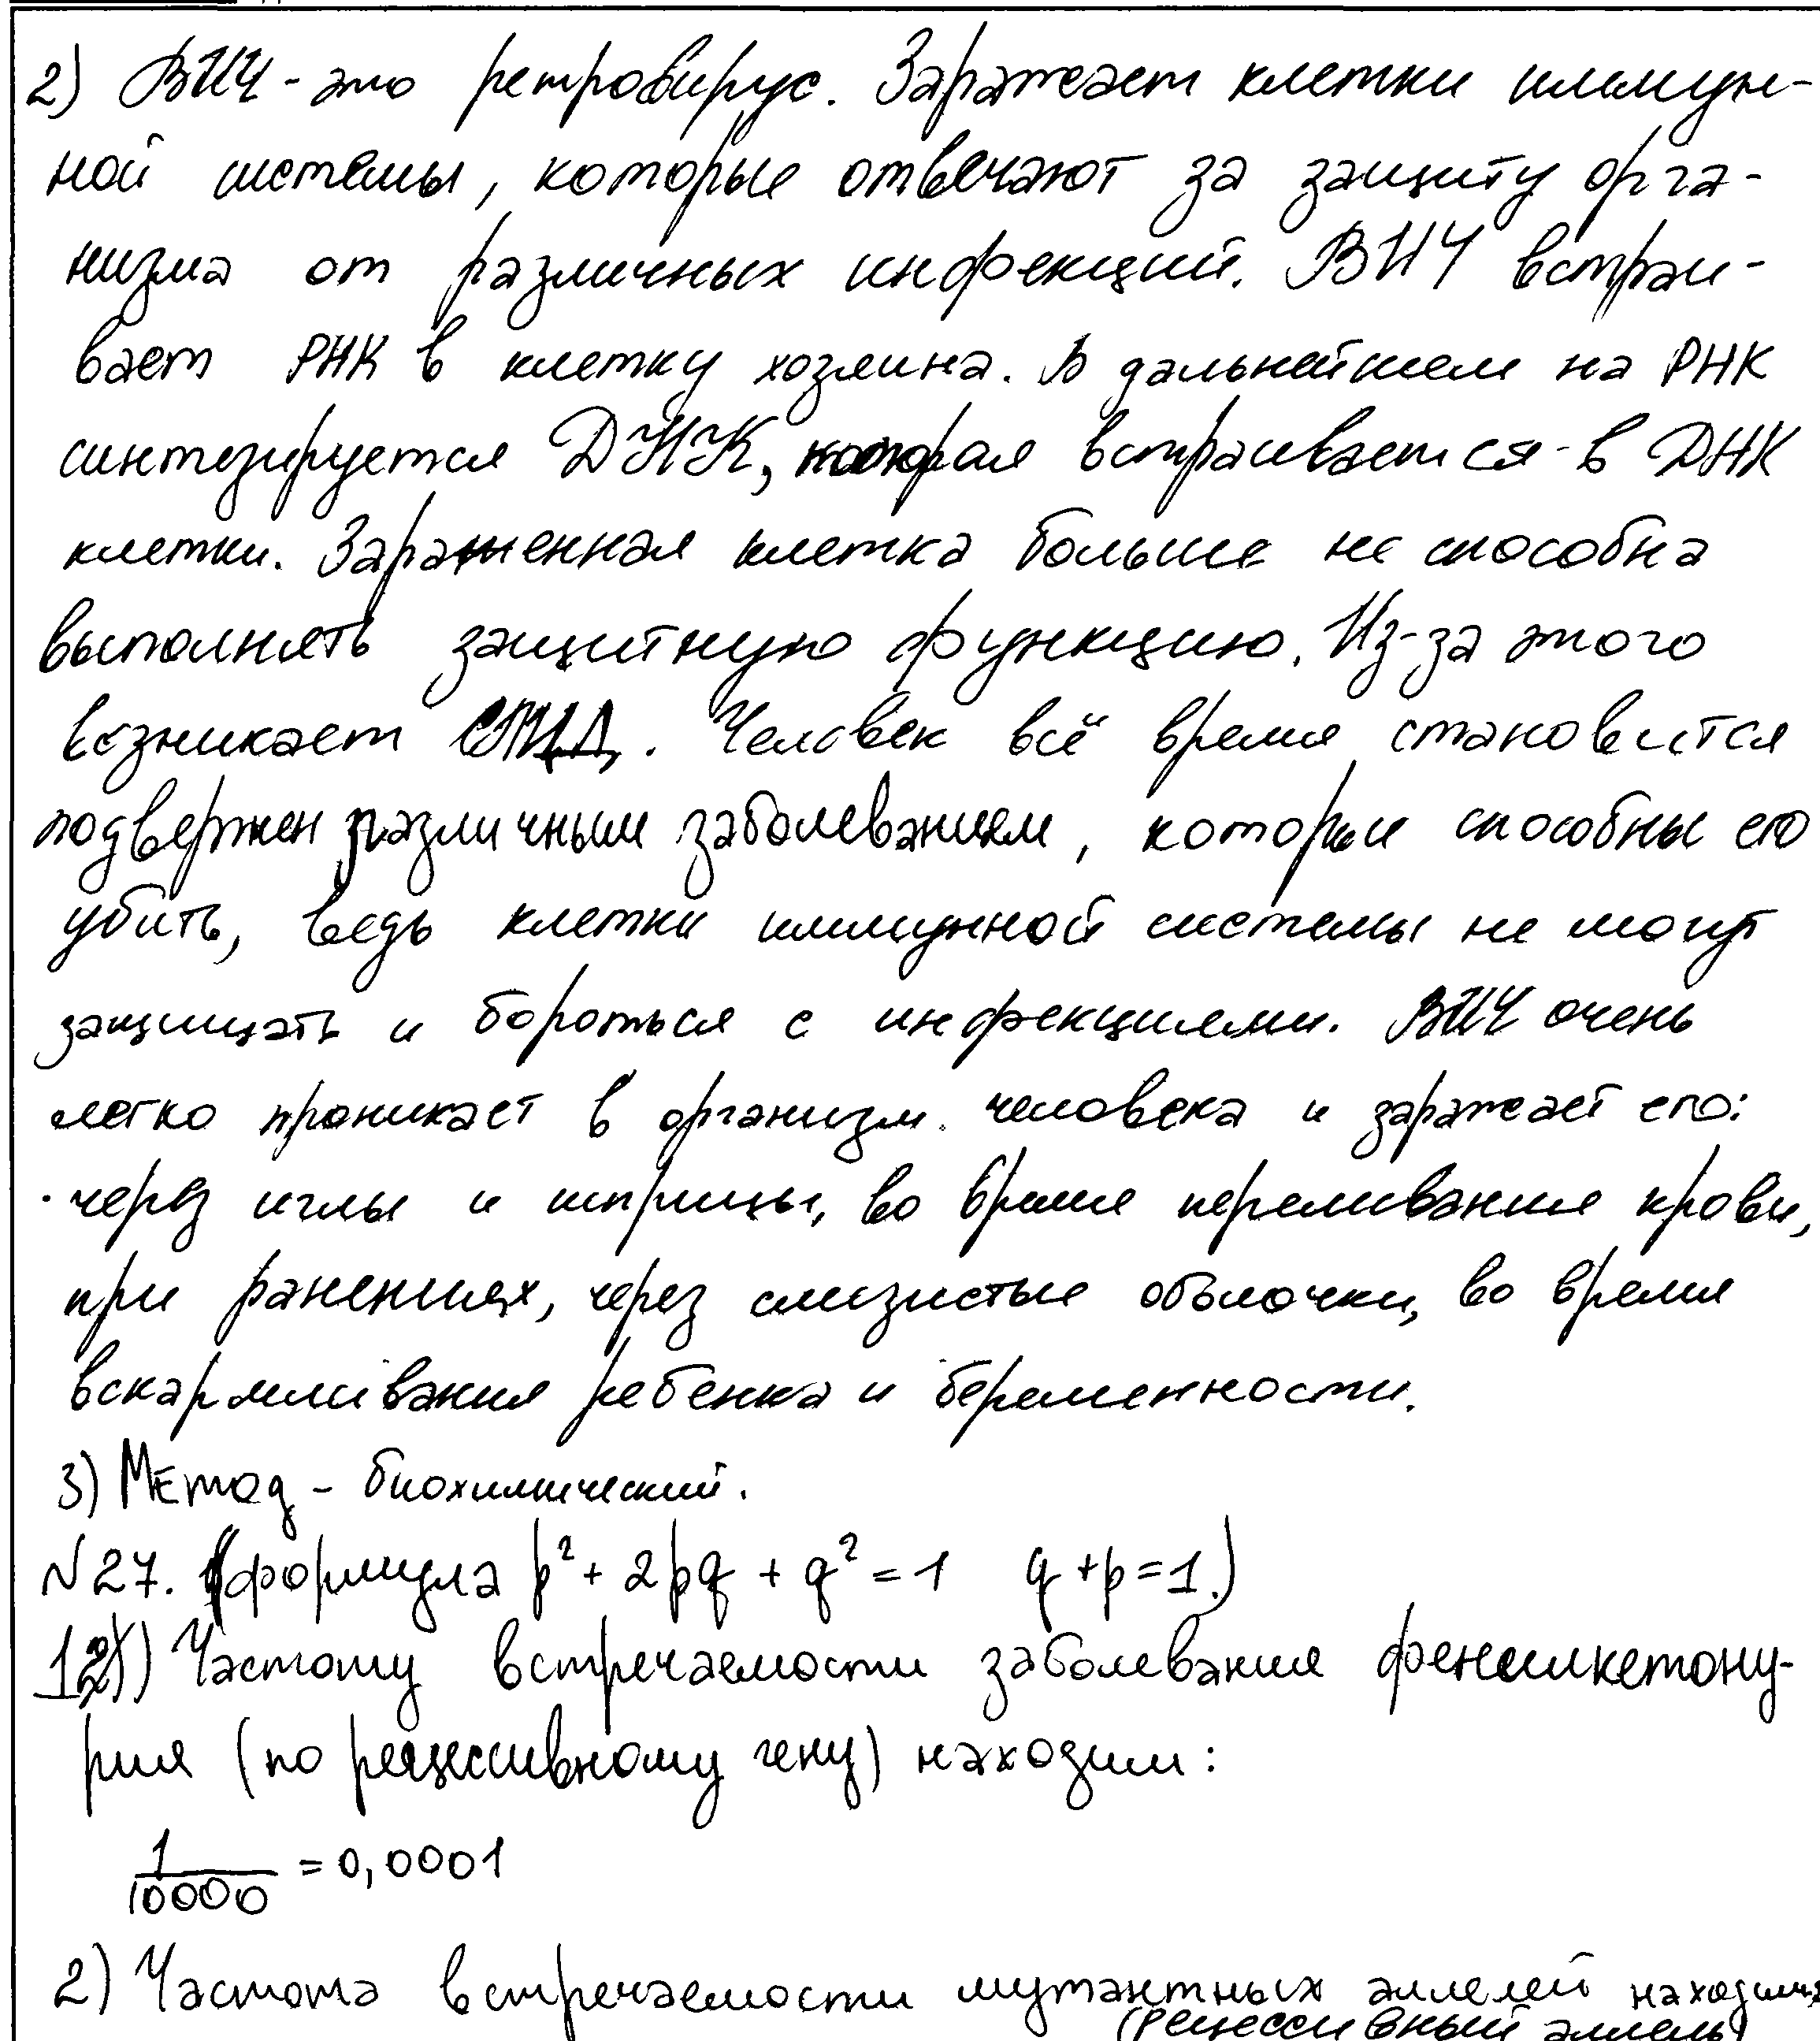 2) ВИЧ - это ретровирус. Заражает клетки иммун-
ной системы, которые отвечают за защиту орга-
низма от различных инфекций. ВИЧ встраи-
вает РНК в клетку хозяина. В дальнейшем на РНК
синтезируется ДНК, которая встраивается в ДНК
клетки. Зараженная клетка больше не способна
выполнять защитную функцию. Из-за этого
возникает СПИД. Человек всё время становится
подвержен различным заболеваниям, которые способны его
убить, ведь клетки иммунной системы не могут
защищать и бороться с инфекциями. ВИЧ очень
легко проникает в организм человека и заражает его:
· через иглы и шприцы, во время переливания крови,
при ранениях, через слизистые оболочки, во время
вскармливания ребенка и беременности.
3) Метод - биохимический.
№27. (формула p² + 2pq + q² = 1 q + p = 1.)
1) Частоту встречаемости заболевания фенилкетону-
рия (по рецессивному гену) находим:
1/10000 = 0,0001
2) Частота встречаемости мутантных аллелей находим
(рецессивный аллель)